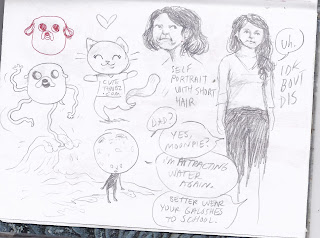 CUTE
SELF
PORTRAIT
WITH SHORT
HAIR
Uh.
DAD?
YES,
MOONPIE?
I'M ATTRACTING
WATER
AGAIN.
BETTER WEAR
YOUR GALOSHES
TO SCHOOL.